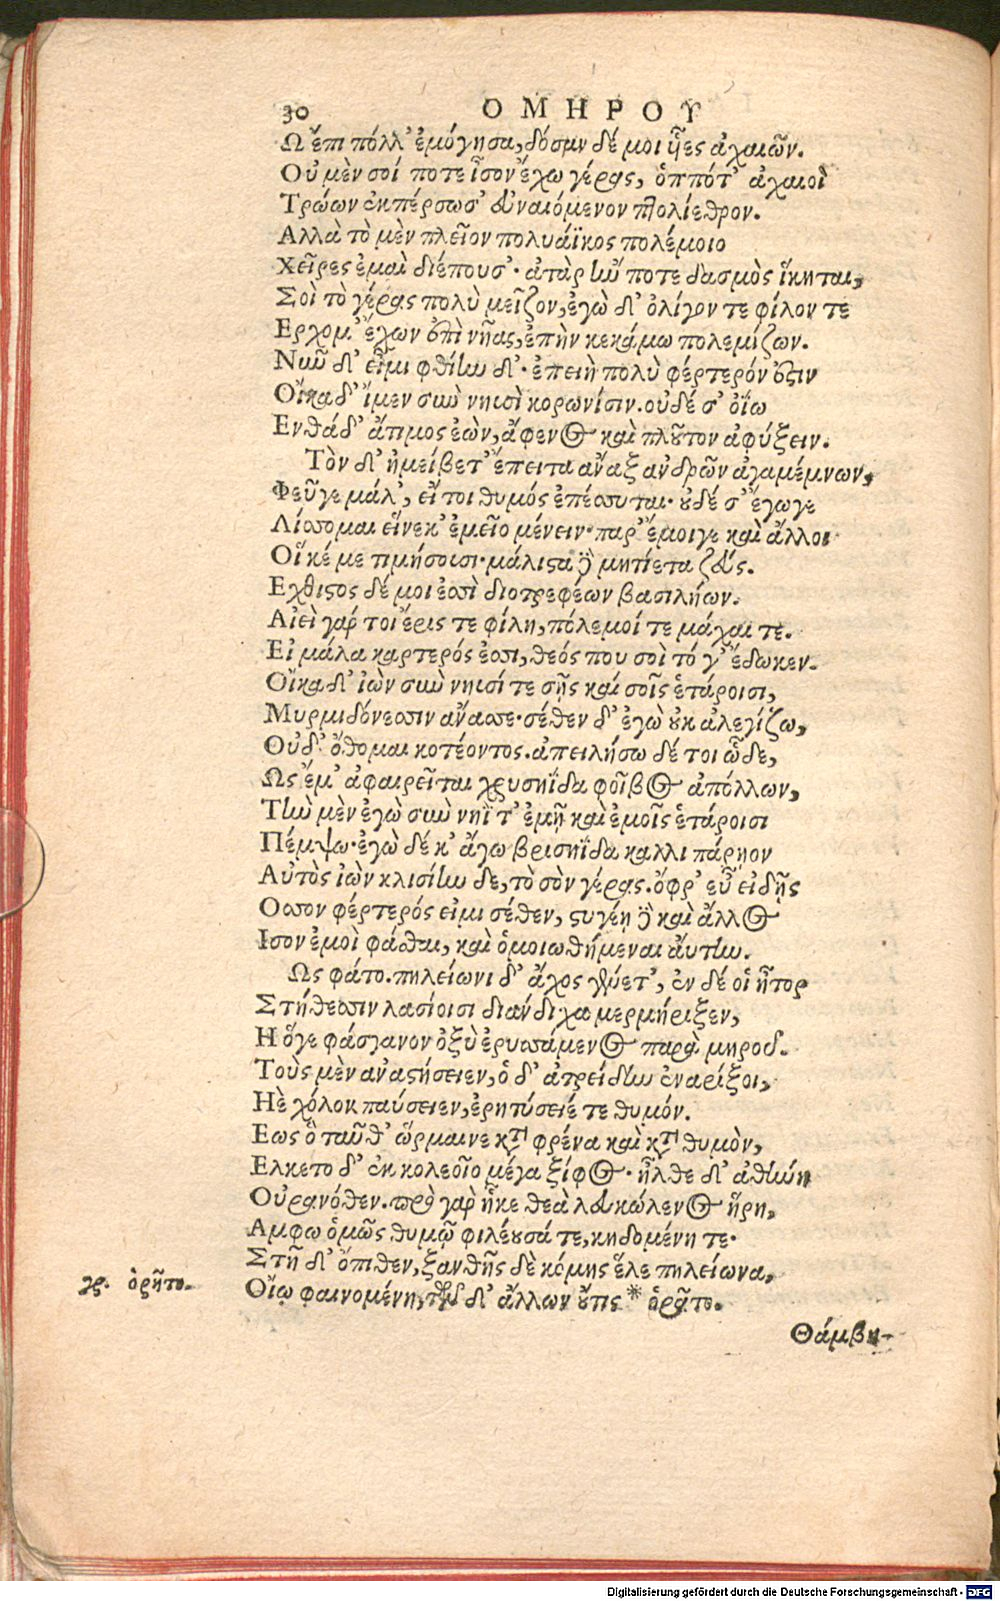 30 ΟΜΗΡΟΥ
Ω ἔπι πόλλ' ἐμόγησα, δόσαν δέ μοι ἧες ἀχαιῶν.
Οὐ μὲν σοί ποτε ἶσον ἔχω γέρας, ὁππότ' ἀχαιοὶ
Τρώων ἐκπέρσωσ' εὐναιόμενον πτολίεθρον.
Αλλὰ τὸ μὲν πλεῖον πολυάϊκος πολέμοιο
Χεῖρες ἐμαὶ διέπουσ'· ἀτὰρ ἢν ποτε δασμὸς ἵκηται,
Σοὶ τὸ γέρας πολὺ μεῖζον, ἐγὼ δ' ὀλίγον τε φίλον τε
Ερχομ' ἔχων ἐπὶ νῆας, ἐπὴν κεκάμω πολεμίζων.
Νῦν δ' εἶμι φθίην δ'· ἐπειὴ πολὺ φέρτερόν ἐστιν
Οἴκαδ' ἴμεν σὺν νηυσὶ κορωνίσιν. οὐδέ σ' ὀΐω
Ενθάδ' ἄτιμος ἐὼν, ἄφενος καὶ πλοῦτον ἀφύξειν.
Τὸν δ' ἠμείβετ' ἔπειτα ἄναξ ἀνδρῶν ἀγαμέμνων,
Φεῦγε μάλ', εἴ τοι θυμός ἐπέσσυται· οὐδέ σ' ἔγωγε
Λίσσομαι εἵνεκ' ἐμεῖο μένειν· παρ' ἔμοιγε καὶ ἄλλοι
Οἵ κέ με τιμήσουσι· μάλιστα δὲ μητίετα ζεύς.
Εχθιστος δέ μοι ἐσσὶ διοτρεφέων βασιλήων.
Αἰεὶ γάρ τοι ἔρις τε φίλη, πόλεμοί τε μάχαι τε.
Εἰ μάλα καρτερός ἐσσι, θεός που σοὶ τό γ' ἔδωκεν.
Οἴκαδ' ἰὼν σὺν νηυσί τε σῇς καί σοῖς ἑτάροισι,
Μυρμιδόνεσσιν ἄνασσε· σέθεν δ' ἐγὼ οὐκ ἀλεγίζω,
Οὐδ' ὄθομαι κοτέοντος. ἀπειλήσω δέ τοι ὧδε,
Ως ἔμ' ἀφαιρεῖται χρυσηΐδα φοῖβος ἀπόλλων,
Τὴν μὲν ἐγὼ σὺν νηΐ τ' ἐμῇ καὶ ἐμοῖς ἑτάροισι
Πέμψω· ἐγὼ δέ κ' ἄγω βρισηΐδα καλλιπάρηον
Αὐτὸς ἰὼν κλισίην δε, τὸ σὸν γέρας. ὄφρ' εὖ εἰδῇς
Οσσον φέρτερός εἰμι σέθεν, στυγέῃ δὲ καὶ ἄλλος
Ισον ἐμοὶ φάσθαι, καὶ ὁμοιωθήμεναι ἄντην.
Ως φάτο. πηλείωνι δ' ἄχος γένετ', ἐν δέ οἱ ἦτορ
Στήθεσσιν λασίοισι διάνδιχα μερμήριξεν,
Η ὅγε φάσγανον ὀξὺ ἐρυσσάμενος παρὰ μηροῦ.
Τοὺς μὲν ἀναστήσειεν, ὁ δ' ἀτρείδην ἐναρίξοι,
Ηὲ χόλον παύσειεν, ἐρητύσειέ τε θυμόν.
Εως ὃ ταῦθ' ὥρμαινε κατὰ φρένα καὶ κατὰ θυμὸν,
Ελκετο δ' ἐκ κολεοῖο μέγα ξίφος· ἦλθε δ' ἀθήνη
Οὐρανόθεν. πρὸ γὰρ ἧκε θεὰ λευκώλενος ἥρη,
Αμφω ὁμῶς θυμῷ φιλέουσά τε, κηδομένη τε·
Στῆ δ' ὄπιθεν, ξανθῆς δὲ κόμης ἕλε πηλείωνα,
Οἴῳ φαινομένη, τῶν δ' ἄλλων οὔτις * ὁρᾶτο.
γρ. ὁρῆτο.
Θάμβη-
Digitalisierung gefördert durch die Deutsche Forschungsgemeinschaft - DFG